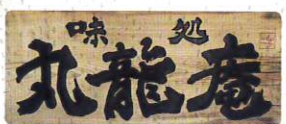 味処
丸龍庵